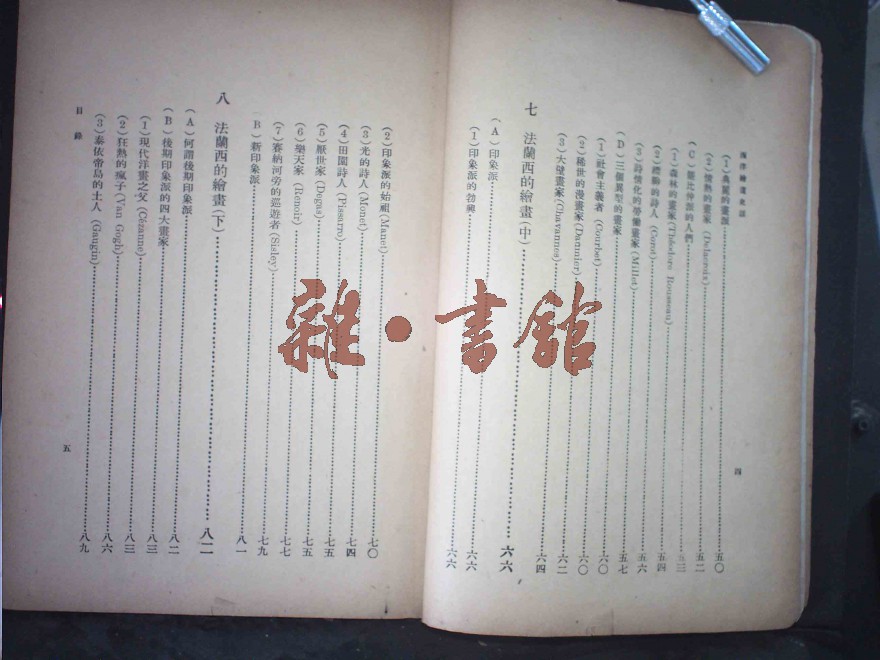 西洋繪畫史話
(1)典麗的畫派……五〇
(2)情熱的畫家(Delacroix)……五二
(C)巴比仲派的人們……五三
(1)森林的畫家(Théodore Rousseau)……五三
(2)禮靜的詩人(Corot)……五四
(3)詩情化的勞働畫家(Millet)……五六
(D)三個異型的畫家……五七
(1)社會主義者(Courbet)……六〇
(2)稀世的漫畫家(Daumier)……六〇
(3)大壁畫家(Chavannes)……六二
六四
七 法蘭西的繪畫(中)……六六
(A)印象派……六六
(1)印象派的勃興……六六
四
(2)印象派的始祖(Manet)……七〇
(3)光的詩人(Monet)……七四
(4)田園詩人(Pissarro)……七五
(5)厭世家(Degas)……七五
(6)樂天家(Renoir)……七七
(7)賽納河旁的巡遊者(Sisley)……七九
(B)新印象派……八一
八 法蘭西的繪畫(下)……八二
(A)何謂後期印象派……八二
(B)後期印象派的四大畫家……八三
(1)現代洋畫之父(Cézanne)……八三
(2)狂熱的瘋子(Van Gogh)……八六
(3)泰依帝島的土人(Gaugin)……八九
目錄
五
雜·書館